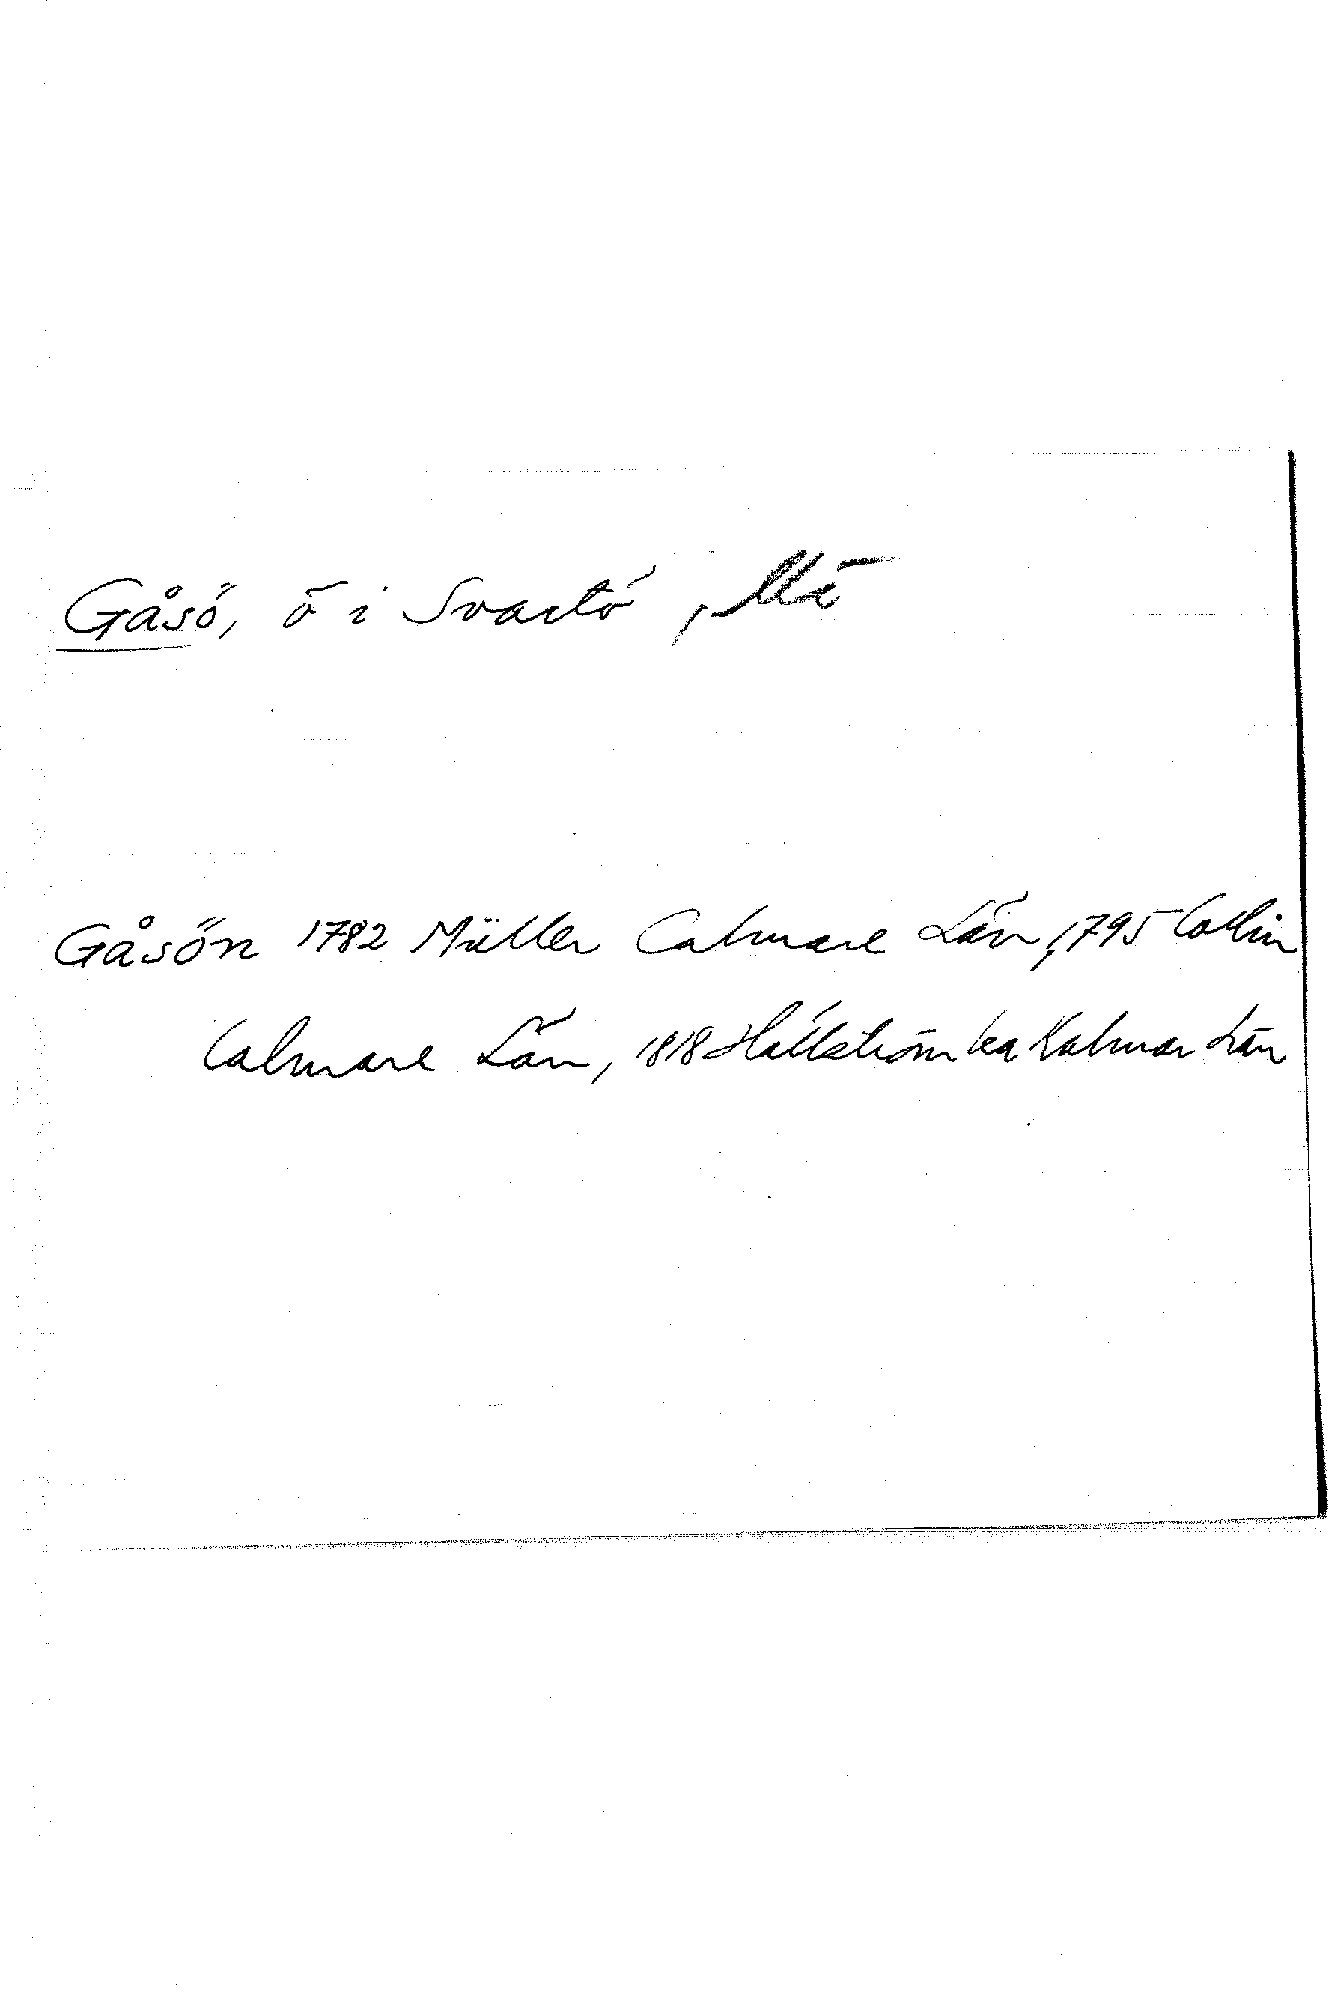 Gåsö, ö i Svartö,
Gåsön 1782 Müller Calmare Län, 1795 Collin
Calmare Län, 1818 Hällström ka Kalmar Län